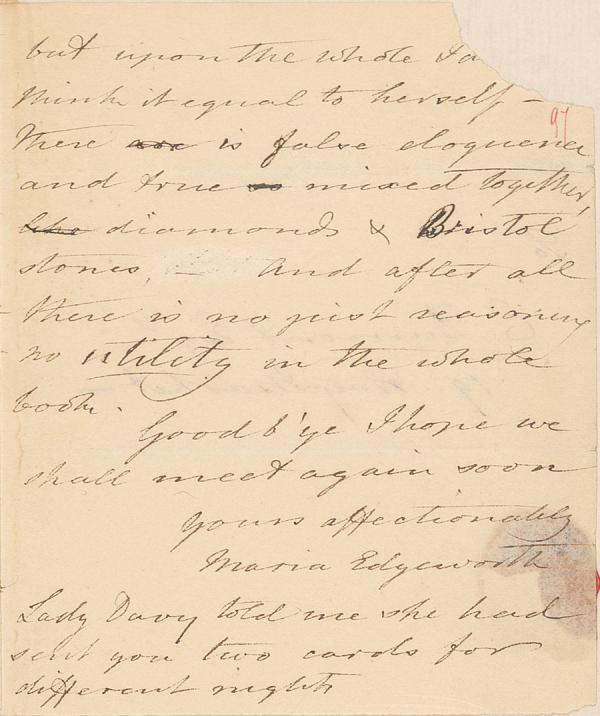 but upon the whole I
think it equal to herself –
97
there are is false eloquence
and true mixed together,
like diamonds & Bristol
stones, – And after all
there is no just reasoning
no utility in the whole
book.
Good b'ye I hope we
shall meet again soon
Yours affectionately
Maria Edgeworth
Lady Davy told me she had
sent you two cards for
different nights